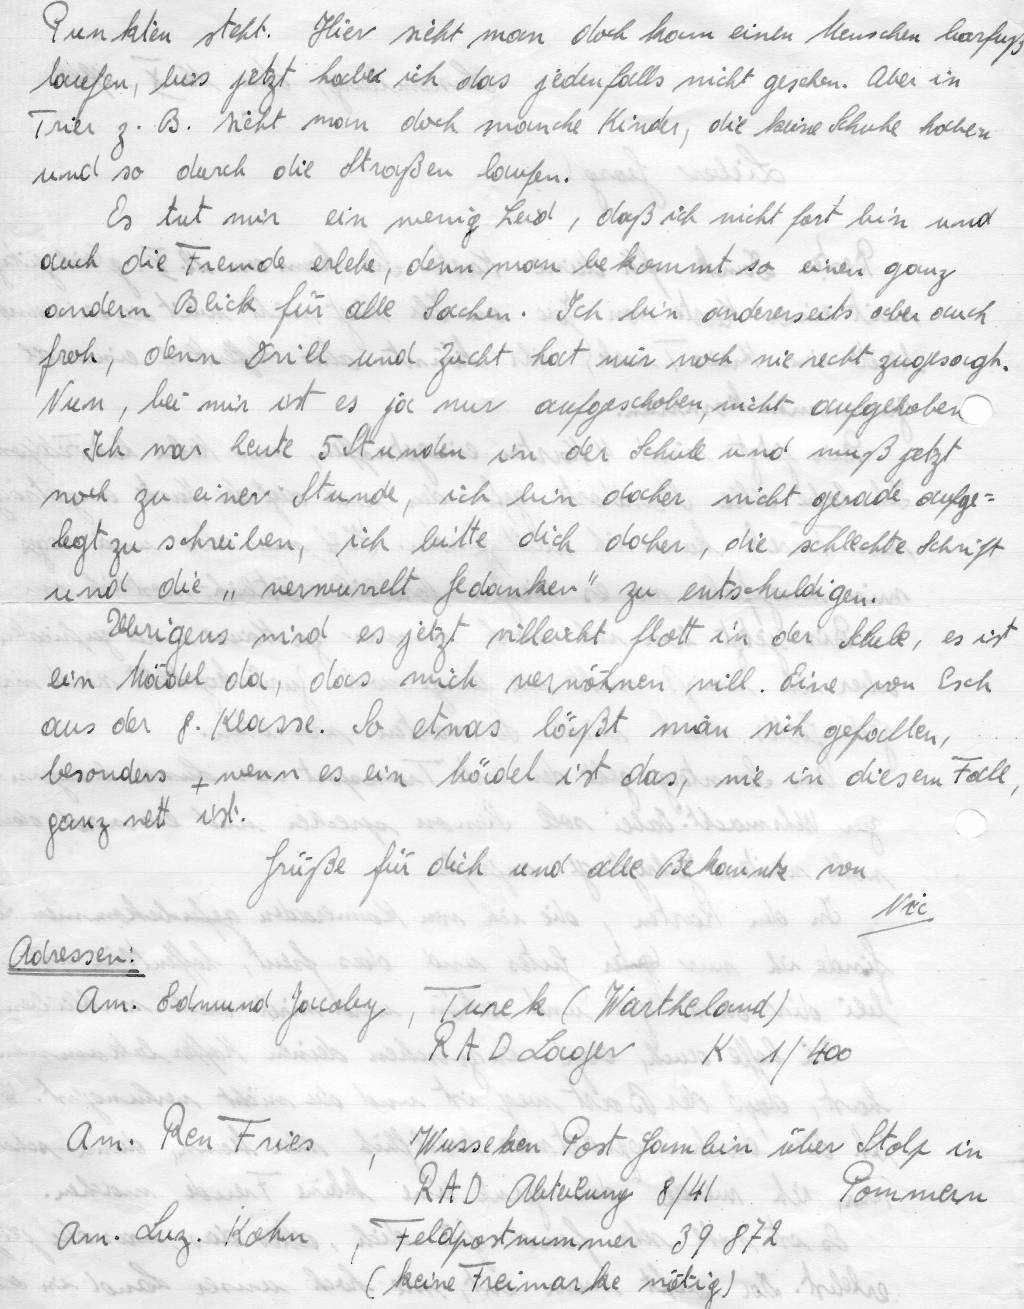 Punkten steht. Hier sieht man doch kaum einen Menschen barfuß
laufen, bis jetzt habe ich das jedenfalls nicht gesehen. Aber in
Trier z. B. sieht man doch manche Kinder, die keine Schuhe haben
und so durch die Straßen laufen.
Es tut mir ein wenig Leid, daß ich nicht fort bin und
auch die Fremde erlebe, denn man bekommt so einen ganz
andern Blick für alle Sachen. Ich bin andererseits aber auch
froh, denn Drill und Zucht hat mir noch nie recht zugesagt.
Nun, bei mir ist es ja nur aufgeschoben, nicht aufgehoben
Ich war heute 5 Stunden in der Schule und muß jetzt
noch zu einer Stunde, ich bin daher nicht gerade aufge=
legt zu schreiben, ich bitte dich daher, die schlechte Schrift
und die „verwurrelt Gedanken" zu entschuldigen.
Übrigens wird es jetzt villeicht flott in der Schule, es ist
ein Mädel da, das mich verwöhnen will. Eine von Esch
aus der 8. Klasse. So etwas läßt man sich gefallen,
besonders + wenn es ein Mädel ist das, wie in diesem Fall,
ganz nett ist.
Grüße für dich und alle Bekannte von
Vic
Adressen:
Am. Edmund Jacoby, Turek (Wartheland)
RAD Lager K 1/400
Am. Ren Fries, Wusseken Post Hambin über Stolp in
RAD Abteilung 8/41 Pommern
Am. Luz. Kohn, Feldpostnummer 39 872
(keine Freimarke nötig)